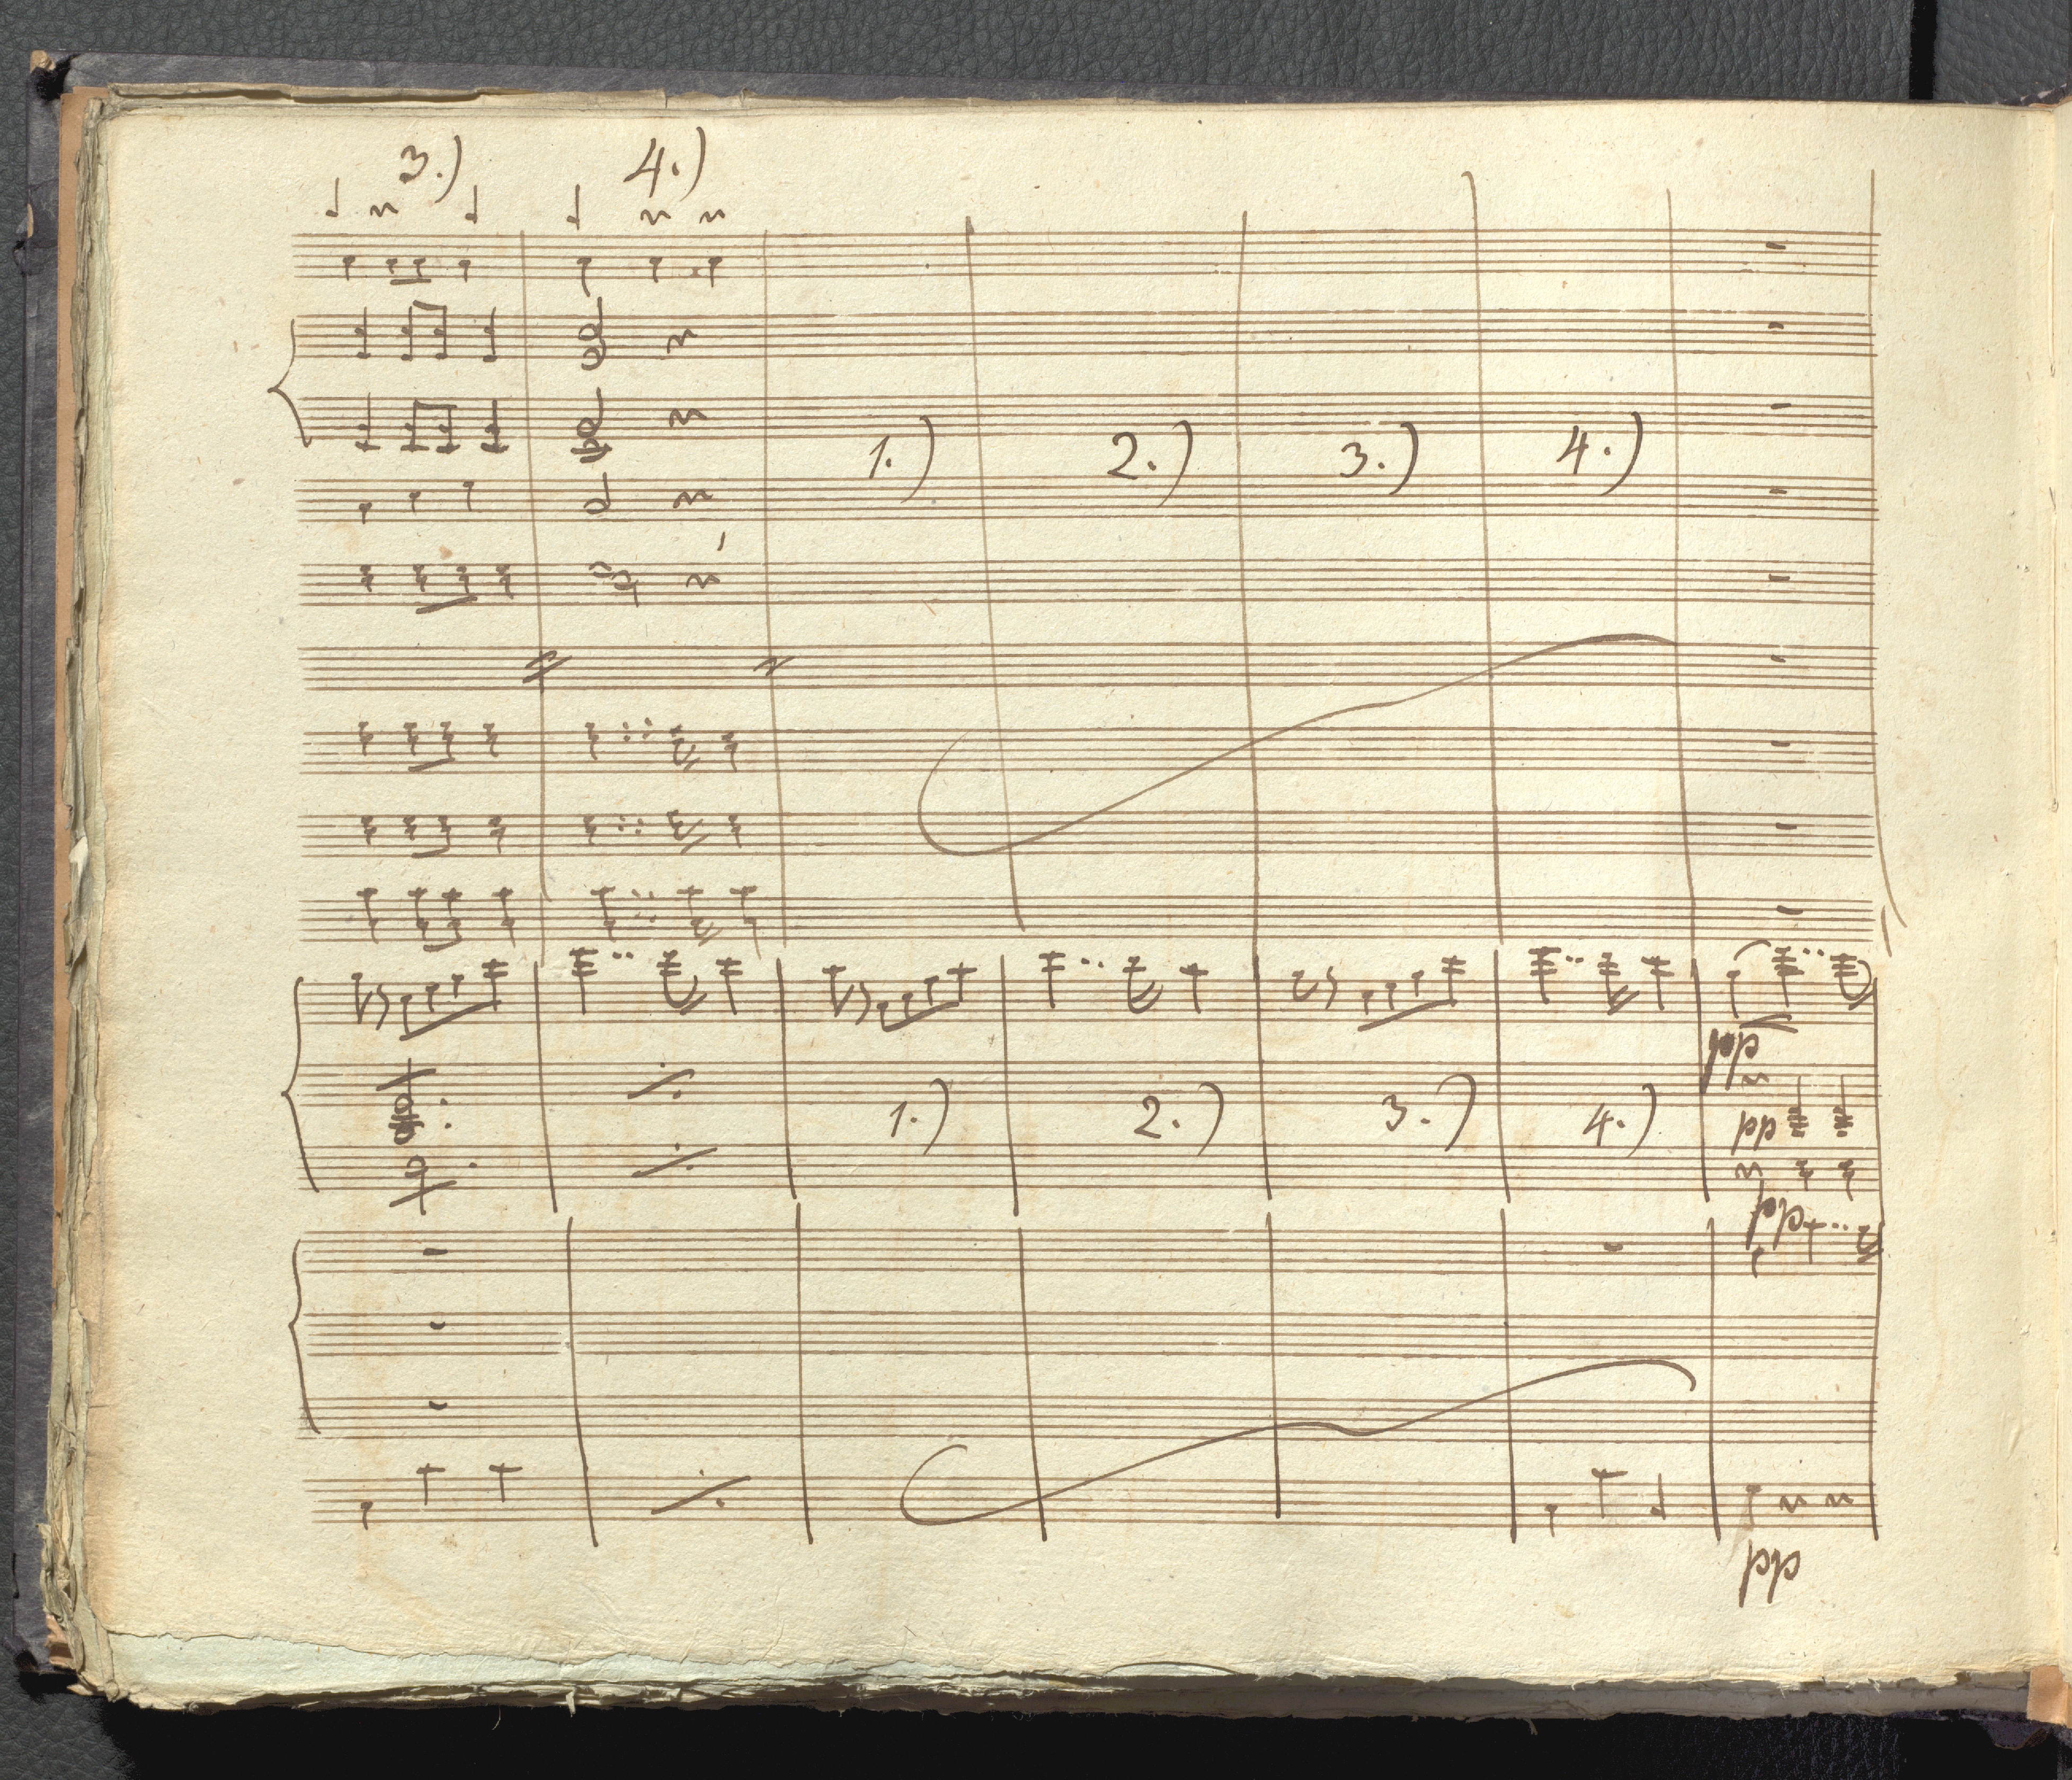 3.) 4.)
1.) 2.) 3.) 4.)
pp
1.) 2.) 3.) 4.) pp
pp
pp